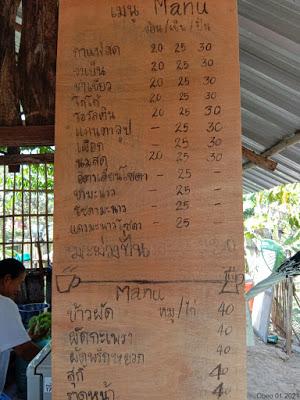 เมนู Manu
ร้อน/เย็น/ปั่น
กาแฟสด 20 25 30
ชาเย็น 20 25 30
ชาเขียว 20 25 30
โกโก้ 20 25 30
โอวัลติน 20 25 30
แคนตาลูป - 25 30
เผือก - 25 30
นมสด 20 25 30
อิตาเลี่ยนโซดา - 25 -
ชามะนาว - 25 -
ชิชดามะนาว - 25 -
แดงมะนาวโซดา - 25
มะม่วงปั่น
Manu
ข้าวผัด หมู/ไก่ 40
ผัดกะเพรา 40
ผัดพริกหยวก 40
สุกี้ 40
ราดหน้า 40
Obeo 01.202